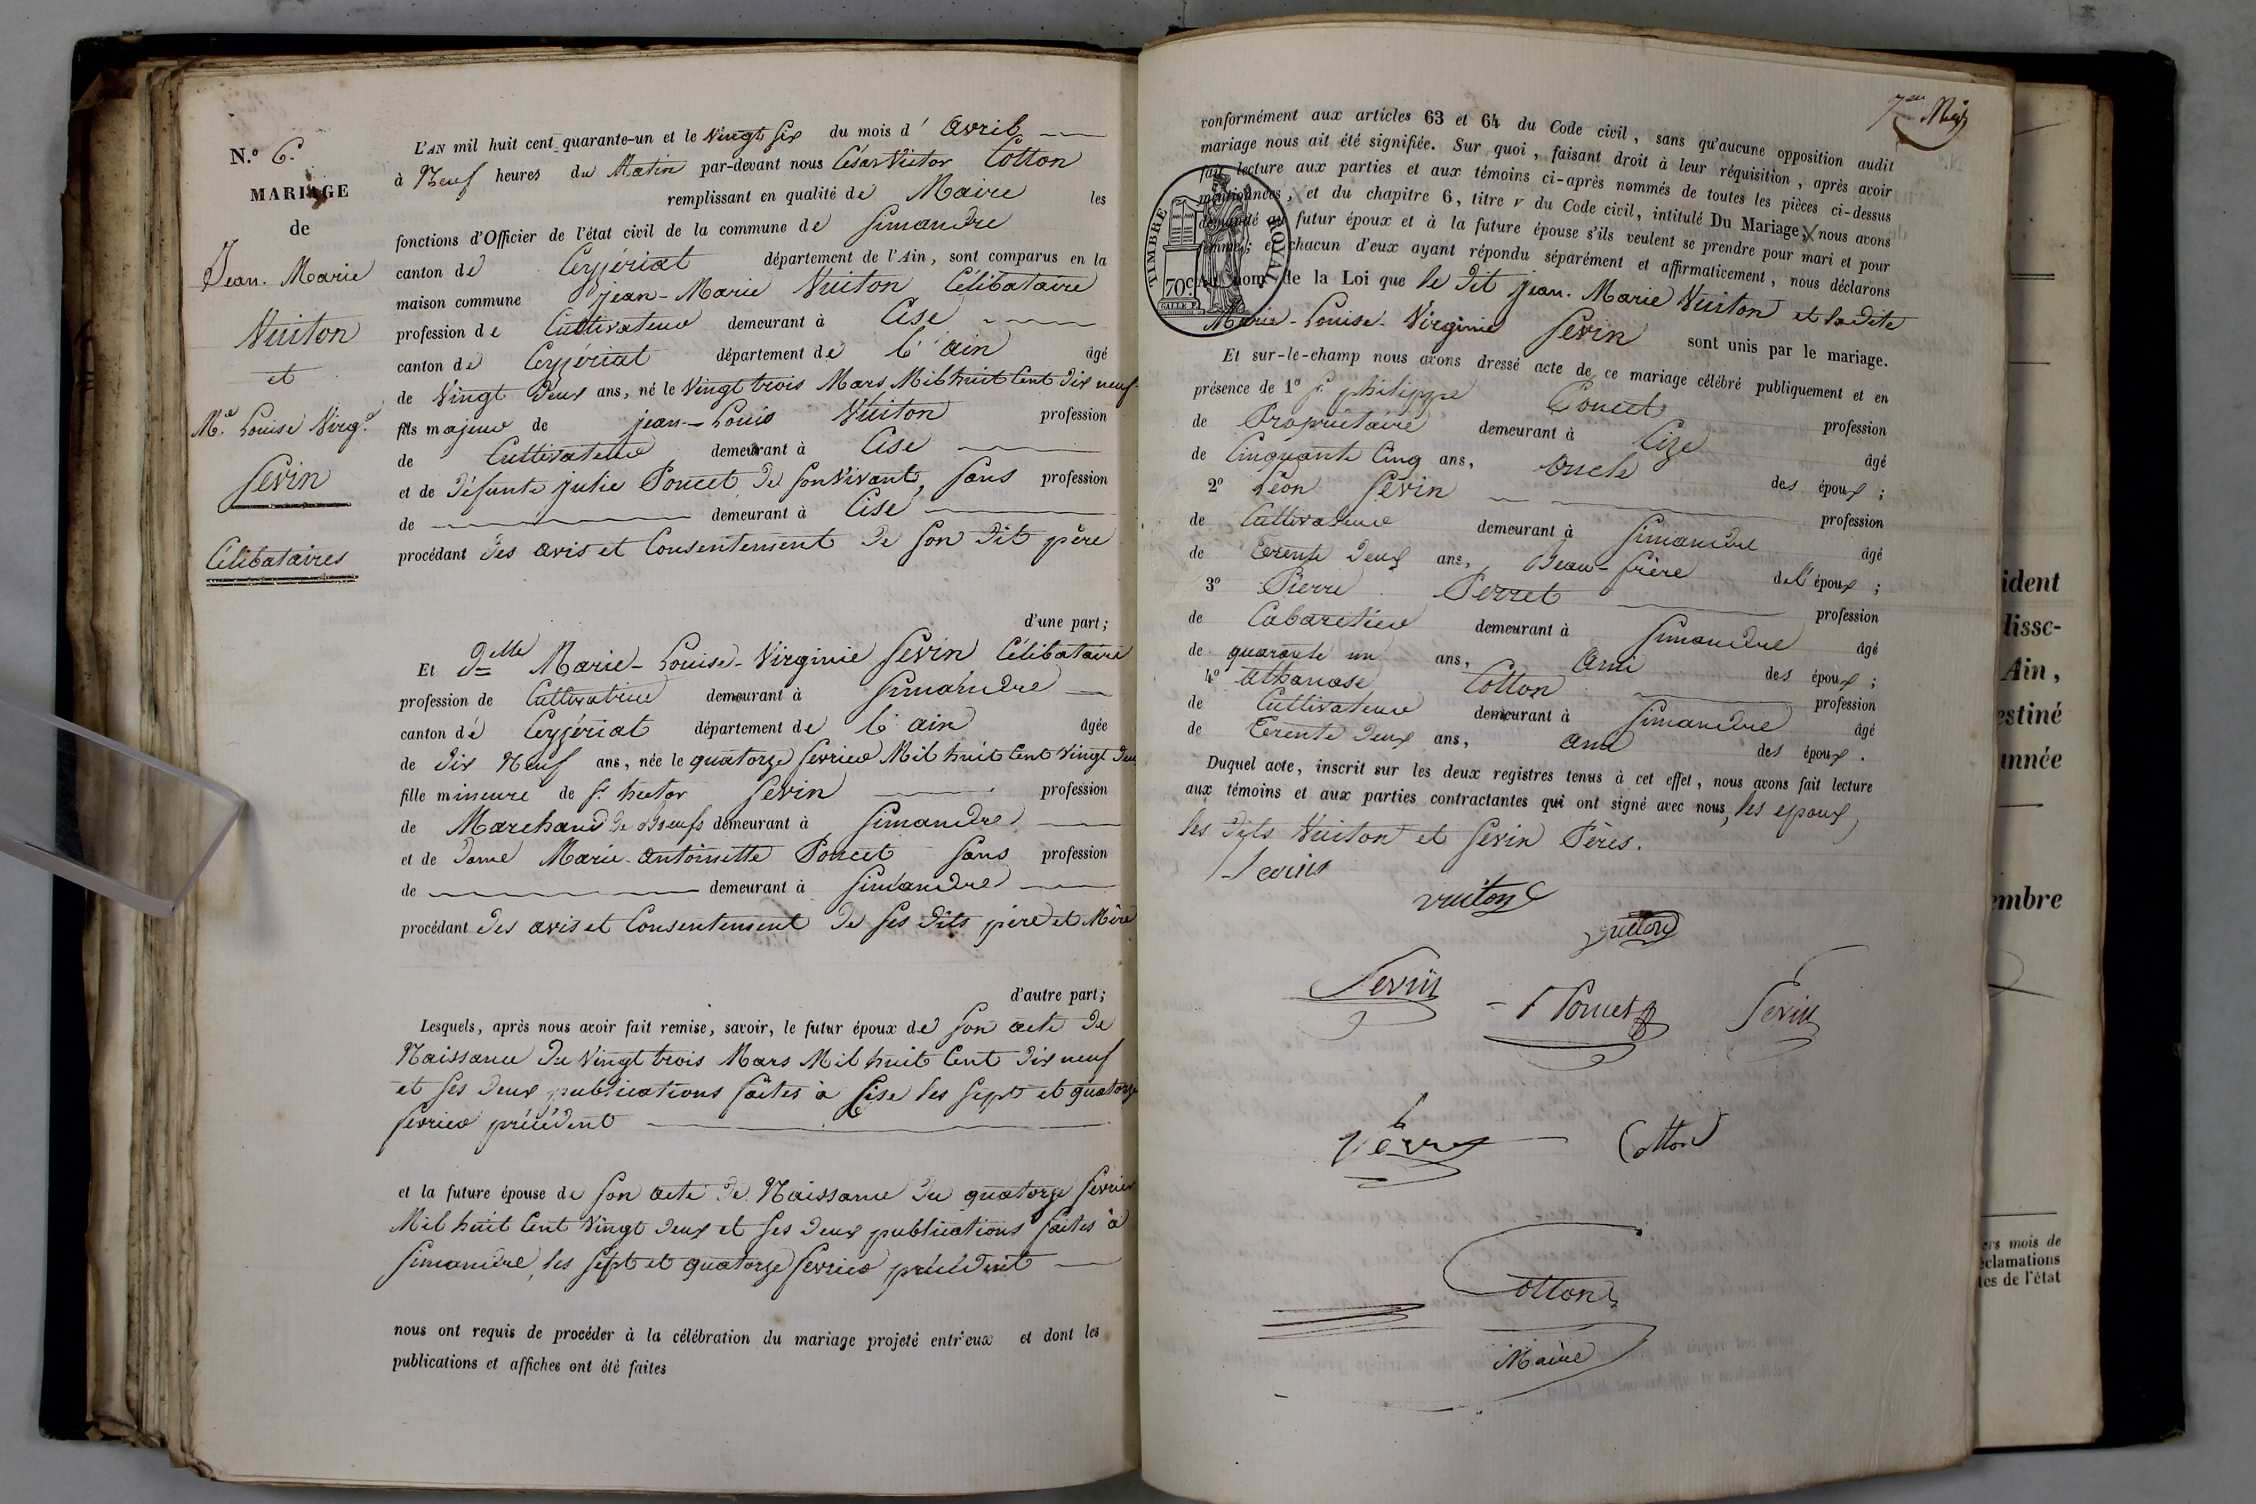 N.º 6.
MARIAGE
de
Jean. Marie
Vuiton
et
M.e Louise Virg.e
Sevin
Célibataires
L'AN mil huit cent quarante-un et le Vingt six du mois d' Avril
à Neuf heures du Matin par-devant nous César Victor Cotton
remplissant en qualité de Maire les
fonctions d'Officier de l'état civil de la commune de Simandre
canton de Ceyzériat département de l'Ain, sont comparus en la
maison commune jean-Marie Vuiton Célibataire
profession de Cultivateur demeurant à Cise
canton de Ceyzériat département de l'ain âgé
de Vingt Deux ans, né le Vingt trois Mars Mil huit Cent dix neuf
fils majeur de jean-Louis Vuiton profession
de Cultivateur demeurant à Cise
et de défunte julie Poncet De Son Vivant, Sans profession
de demeurant à Cise
procédant Des avis et Consentement De Son Dit père
d'une part;
Et D.elle Marie-Louise-Virginie Sevin Célibataire
profession de Cultivatrice demeurant à Simandre
canton de Ceyzériat département de l'ain âgée
de Dix Neuf ans, née le quatorze fevrier Mil huit Cent Vingt Deux
fille mineure de S.r hector Sevin profession
de Marchand De Boeufs demeurant à Simandre
et de Dame Marie-antoinette Poncet Sans profession
de demeurant à Simandre
procédant Des avis et Consentement De Ses Dits père et Mère
d'autre part;
Lesquels, après nous avoir fait remise, savoir, le futur époux de Son acte De
Naissance Du Vingt trois Mars Mil huit Cent Dix neuf
et Ses Deux publications faites à Cise les Sept et quatorze
fevrier précédent
et la future épouse de Son acte De Naissance Du quatorze fevrier
Mil huit Cent Vingt Deux et Ses Deux publications faites à
Simandre, les Sept et quatorze fevrier précédent
nous ont requis de procéder à la célébration du mariage projeté entr'eux et dont les
publications et affiches ont été faites
7.me
conformément aux articles 63 et 64 du Code civil, sans qu'aucune opposition audit
mariage nous ait été signifiée. Sur quoi, faisant droit à leur réquisition, après avoir
fait lecture aux parties et aux témoins ci-après nommés de toutes les pièces ci-dessus
mentionnées, et du chapitre 6, titre v du Code civil, intitulé Du Mariage, nous avons
demandé au futur époux et à la future épouse s'ils veulent se prendre pour mari et pour
femme; et chacun d'eux ayant répondu séparément et affirmativement, nous déclarons
Au nom de la Loi que le Dit jean. Marie Vuiton et ladite
Marie-Louise-Virginie Sevin sont unis par le mariage.
TIMBRE ROYAL
70c
Et sur-le-champ nous avons dressé acte de ce mariage célébré publiquement et en
présence de 1º S.r philippe Poncet profession
de Propriétaire demeurant à Cize âgé
de Cinquante Cinq ans, oncle des époux;
2º Léon Sevin profession
de Cultivateur demeurant à Simandre âgé
de Trente Deux ans, Beau-frère de l'époux;
3º Pierre Perret profession
de Cabaretier demeurant à Simandre âgé
de quarante un ans, Ami des époux;
4º athanase Cotton profession
de Cultivateur demeurant à Simandre âgé
de Trente Deux ans, ami des époux.
Duquel acte, inscrit sur les deux registres tenus à cet effet, nous avons fait lecture
aux témoins et aux parties contractantes qui ont signé avec nous, les epoux,
les Dits Vuiton et Sevin Pères.
Sevin
vuiton
vuiton
Sevin
P Poncet
Sevin
Cotton
Cotton
Maire
ident
lissc-
Ain,
estiné
année
embre
ers mois de
éclamations
tes de l'état